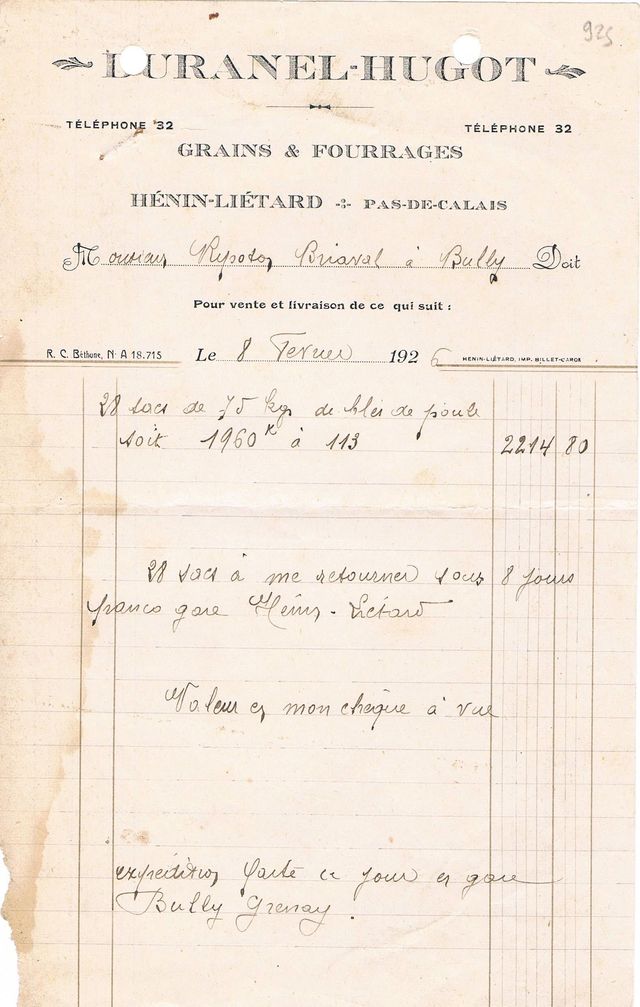 925
DURANEL-HUGOT
TÉLÉPHONE 32 TÉLÉPHONE 32
GRAINS & FOURRAGES
HÉNIN-LIÉTARD PAS-DE-CALAIS
Monsieur Briaval à Bully Doit
Pour vente et livraison de ce qui suit :
R. C. Béthune, N· A 18.715 Le 8 Fevrier 1926 HENIN-LIÉTARD, IMP. BILLET-CARON
28 sacs de 75 kgs de blés de poule
soit 1960 K à 113 2214 80
28 sacs à me retourner sous 8 jours
franco gare Hénin-Liétard
Valeur en mon chèque à vue
expédition faite ce jour en gare
Bully Grenay.